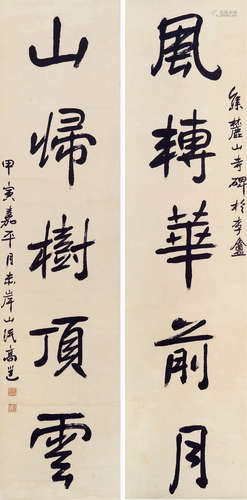 集麓山寺碑於李盦
風轉華前月
山歸樹頂雲
甲寅嘉平月赤岸山民高邕